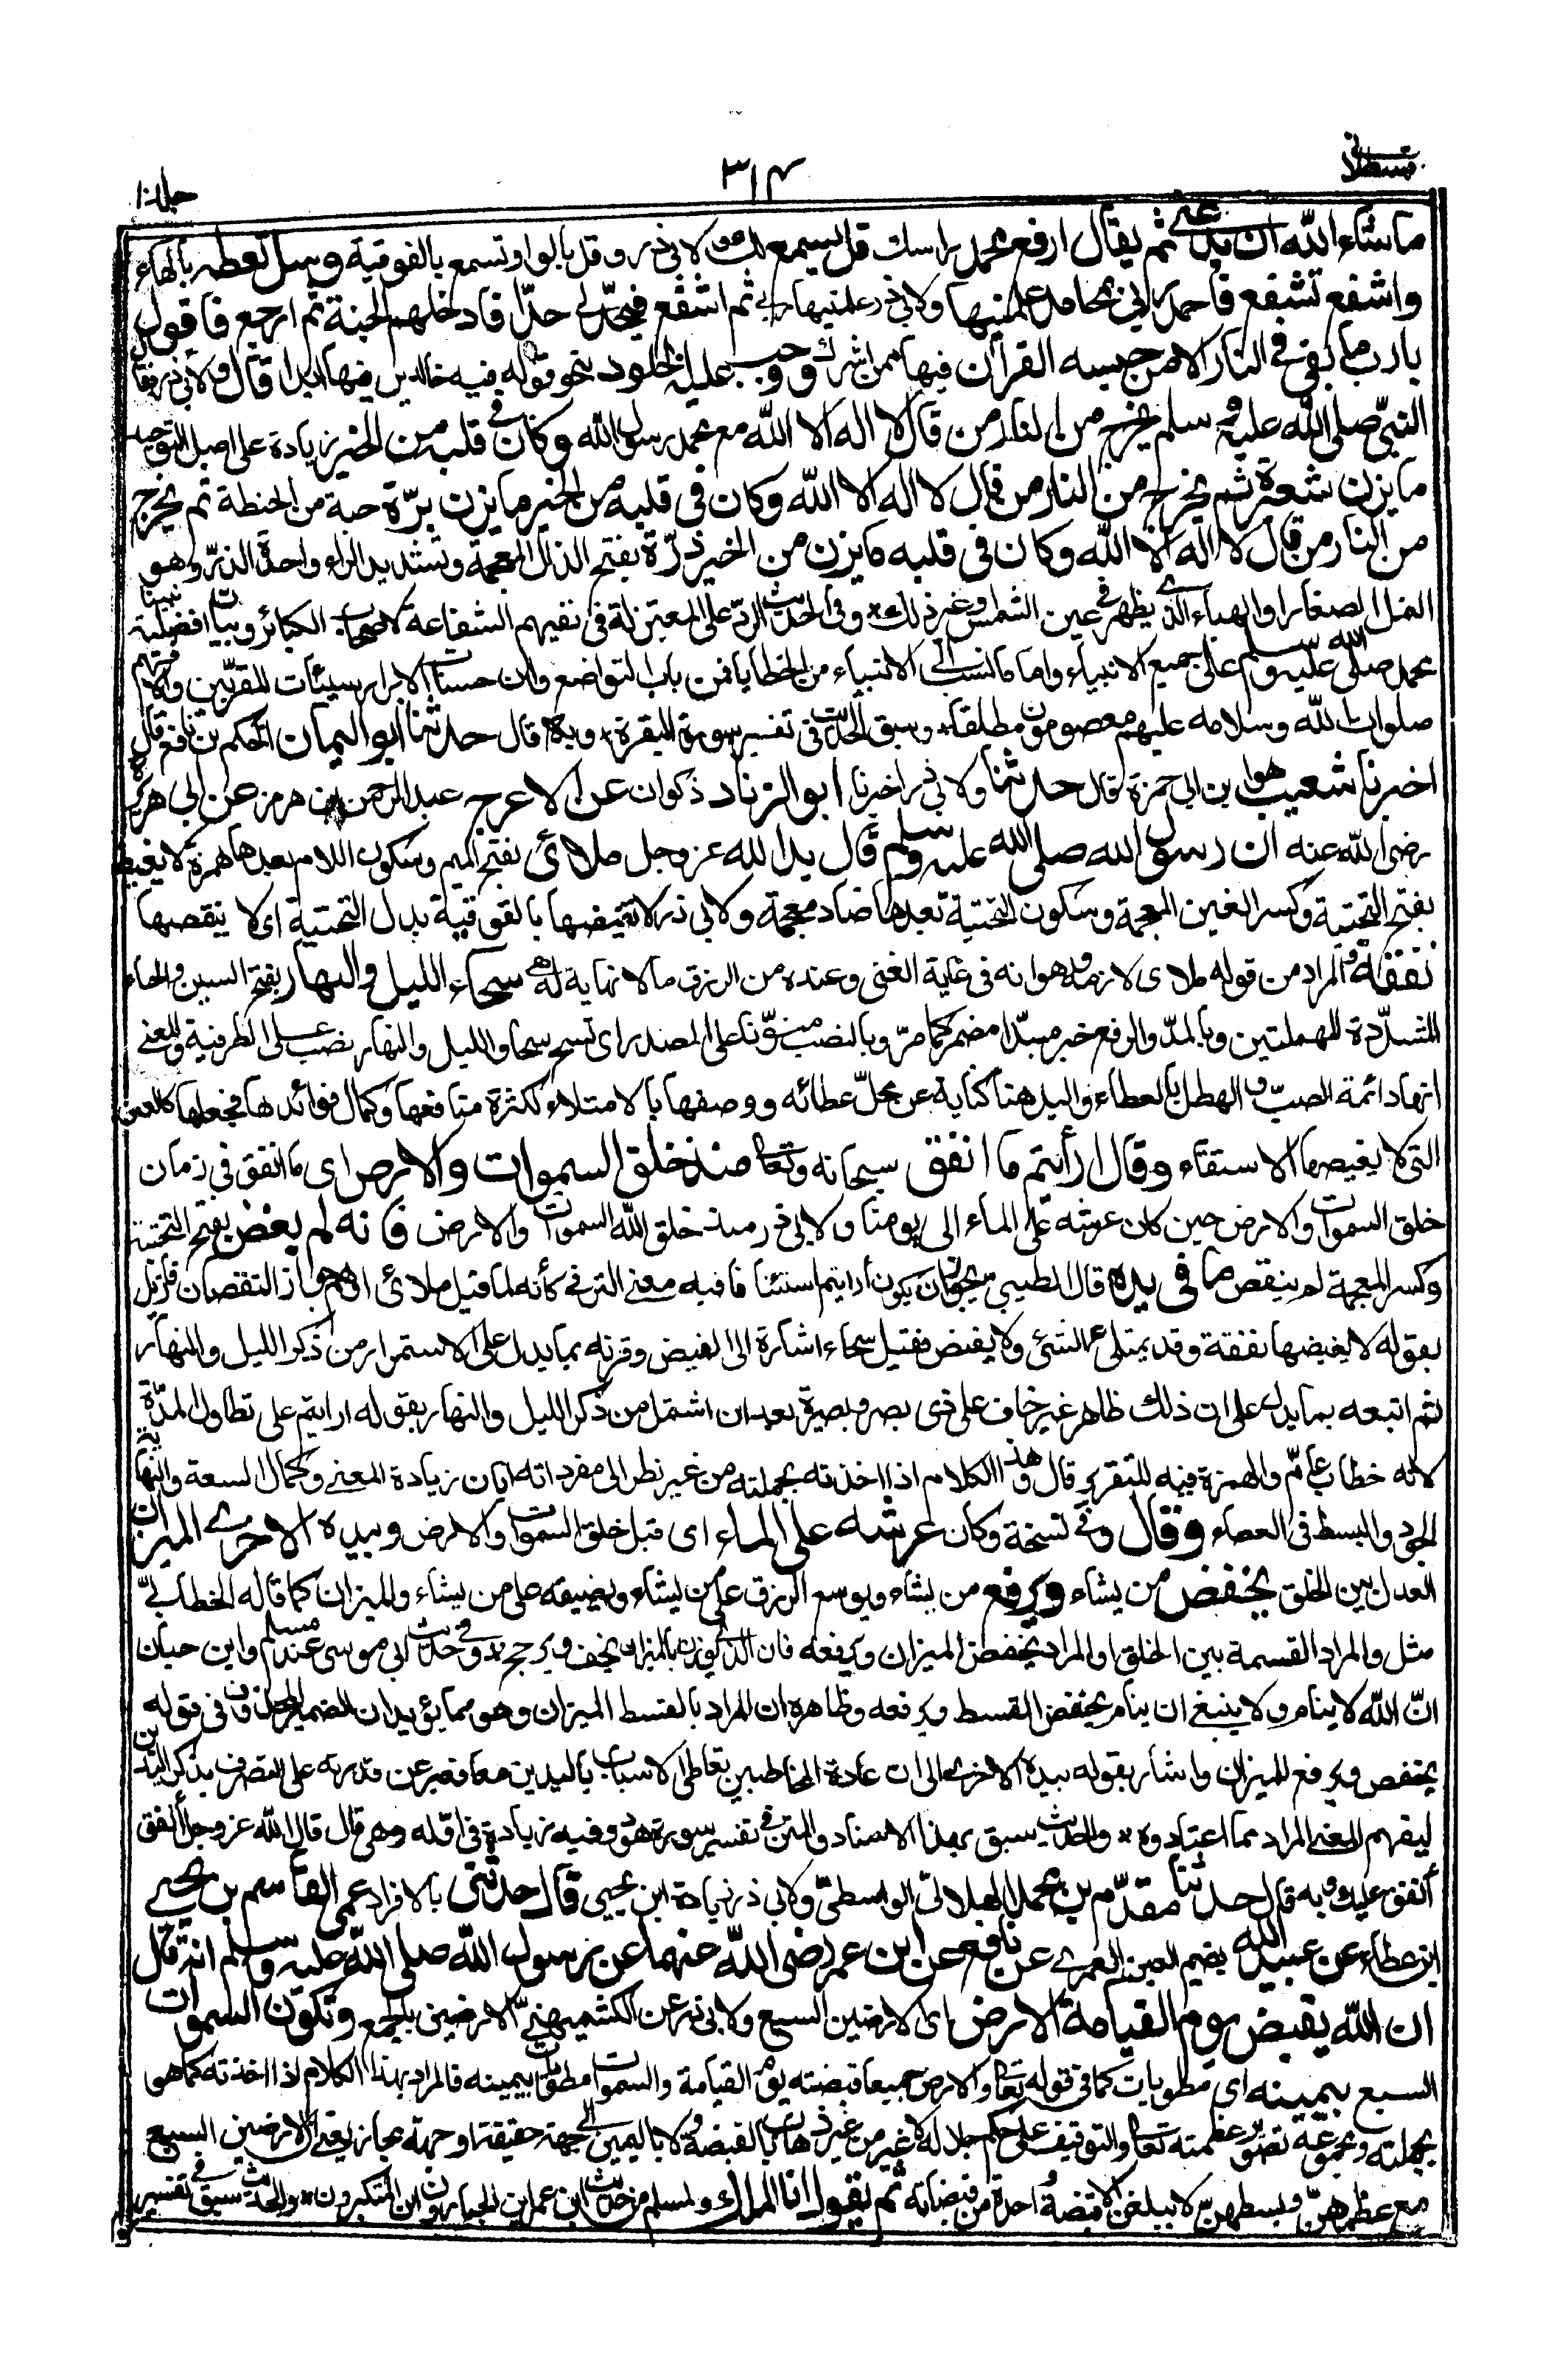 قسطلانی
٣١٤
جلد١٠
ما شاء الله ان يدعني ثم يقال ارفع محمد راسك قل يسمع لك ولابي ذر وقل بالواو تسمع بالفوقية وسل تعطه بالهاء
واشفع تشفع فأحمد ربي بمحامد علمنيها ولابي ذر علمنيها ربي ثم اشفع فيحدّ لي حدّا فادخلهم الجنة ثم ارجع فاقول
يارب ما بقي في النار الا من حبسه القرآن فيها ممن اشرك ووجب عليه الخلود بنحو قوله فيه خالدين فيها ابدا قال ولابي ذر فقال
النبيّ صلى الله عليه وسلم يخرج من النار من قال لا اله الا الله مع محمد رسول الله وكان في قلبه من الخير زيادة على اصل التوحيد
ما يزن شعيرة ثم يخرج من النار من قال لا اله الا الله وكان في قلبه من الخير ما يزن برّة حبة من الحنطة ثم يخرج
من النار من قال لا اله الا الله وكان في قلبه ما يزن من الخير ذرّة بفتح الذال المعجمة وتشديد الراء واحدة الذرّ وهو
النمل الصغار او الهباء الذي يظهر في عين الشمس او غير ذلك * وفي الحديث الردّ على المعتزلة في نفيهم الشفاعة لاصحاب الكبائر وبيان افضلية نبينا
محمد صلى الله عليه وسلم على جميع الانبياء واما ما نسب الى الانبياء من الخطايا فمن باب التواضع وان حسنات الابرار سيئات المقربين والا فهم
صلوات الله وسلامه عليهم معصومون مطلقا * وسبق الحديث في تفسير سورة البقرة * وبه قال حدثنا ابو اليمان الحكم بن نافع قال
اخبرنا شعيب هو ابن ابي حمزة قال حدثنا ولابي ذر اخبرنا ابو الزناد ذكوان عن الاعرج عبد الرحمن بن هرمز عن ابي هريرة
رضي الله عنه ان رسول الله صلى الله عليه وسلم قال يد الله عز وجل ملأى بفتح الميم وسكون اللام بعدها همزة لا يغيضها
بفتح التحتية وكسر الغين المعجمة وسكون التحتية بعدها ضاد معجمة ولابي ذر لا تغيضها بالفوقية بدل التحتية اي لا ينقصها
نفقة والمراد من قوله ملاى لازمه وهو انه في غاية الغنى وعنده من الرزق ما لا نهاية له هي سحاء الليل والنهار بفتح السين والحاء
المشدّدة المهملتين وبالمدّ والرفع خبر مبتدا مضمر كما مرّ وبالنصب منوّنا على المصدر اي تسح سحا والليل والنهار نصب على الظرفية والمعنى
انها دائمة الصبّ والهطل بالعطاء واليد هنا كناية عن محلّ عطائه ووصفها بالامتلاء لكثرة منافعها وكمال فوائدها فجعلها كالعين
التي لا يغيضها الاستقاء وقال ارأيتم ما انفق سبحانه وتعالى منذ خلق السموات والارض اي ما انفق في زمان
خلق السموات والارض حين كان عرشه على الماء الى يومنا ولابي ذر منذ خلق الله السموات والارض فانه لم يغض بفتح التحتية
وكسر المعجمة لم ينقص ما في يده قال الطيبي يجوز ان يكون ارايتم استئنافا فيه معنى الترقي كأنه لما قيل ملأى اوهم جواز النقصان فازيل
بقوله لا يغيضها نفقة وقد يمتلئ الشئ ولا يفيض فقيل سحاء اشارة الى الفيض وقرنه بما يدل على الاستمرار من ذكر الليل والنهار
ثم اتبعه بما يدل على ان ذلك ظاهر غير خاف على ذي بصر وبصيرة بعد ان اشتمل من ذكر الليل والنهار بقوله ارايتم على تطاول المدّة
لانه خطاب عامّ والهمزة فيه للتقرير قال وهذا الكلام اذا اخذته بجملته من غير نظر الى مفرداته ابان زيادة المعنى وكمال السعة والنهاية
الجود والبسط في العطاء وقال وفي نسخة وكان عرشه على الماء اي قبل خلق السموات والارض وبيده الاخرى الميزان
العدل بين الخلق يخفض من يشاء ويرفع من يشاء ويوسع الرزق على من يشاء ويضيقه على من يشاء والميزان كما قاله الخطابيّ
مثل والمراد القسمة بين الخلق او المراد يخفض الميزان ويرفعه فان الذي يوزن بالميزان يخف ويرجح * وفي حديث ابي موسى عند مسلم وابن حبان
انّ الله لا ينام ولا ينبغي ان ينام يخفض القسط ويرفعه وظاهره ان المراد بالقسط الميزان وهو مما يؤيد ان الضمير المحذوف في قوله
يخفض ويرفع للميزان واشار بقوله بيده الاخرى الى ان عادة المخاطبين تعاطي الاسباب باليدين معا فعبر عن قدرته على التصرف بذكر اليدين
ليفهم المعنى المراد مما اعتادوه * والحديث سبق بهذا الاسناد والمتن في تفسير سورة هود وفيه زيادة في اوّله وهي قال قال الله عز وجل أنفق
أنفق عليك وبه قال حدثنا مقدّم بن محمد الهلاليّ الواسطيّ ولابي ذر زيادة ابن يحيى قال حدثني بالافراد عمي القاسم بن يحيى
ابن عطاء عن عبيد الله بضم العين العمري عن نافع عن ابن عمر رضي الله عنهما عن رسول الله صلى الله عليه وسلم انه قال
ان الله يقبض يوم القيامة الارض اي الارضين السبع ولابي ذر عن الكشميهنيّ الارضين بالجمع وتكون السموات
السبع بيمينه اي مطويات كما في قوله تعالى والارض جميعا قبضته يوم القيامة والسموات مطويات بيمينه فالمراد بهذا الكلام اذا اخذته كما هو
بجملته ومجموعه تصوير عظمته تعالى والتوقيف على حكم جلاله لا غير من غير ذهاب بالقبضة ولا باليمين الى جهة حقيقة او جهة مجاز يعني الارضين السبع
مع عظمهنّ وبسطهنّ لا يبلغن الا قبضة واحدة من قبضاته ثم يقول انا الملك ولمسلم من حديث ابن عمر اين الجبارون اين المتكبرون * والحديث سبق في تفسير